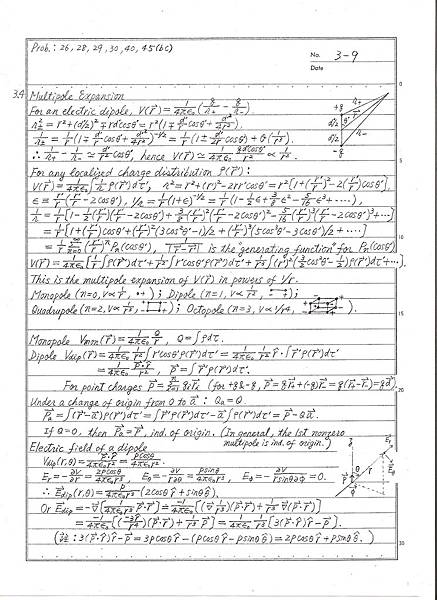 Prob.: 26, 28, 29, 30, 40, 45(bc)
No. 3-9
Date
0
3.4 Multipole Expansion
For an electric dipole, V(r⃗) = 1/4πε₀ (q/r₊ − q/r₋).
r±² = r² + (d/2)² ∓ rd cosθ = r²(1 ∓ d/r cosθ + d²/4r²).
1/r± = 1/r (1 ∓ d/r cosθ + d²/4r²)^(-1/2) = 1/r (1 ± d/2r cosθ) + O(1/r³).
∴ 1/r₊ − 1/r₋ ≃ d/r² cosθ, hence V(r⃗) ≃ 1/4πε₀ qd cosθ/r² ∝ 1/r².
5
For any localized charge distribution ρ(r⃗):
V(r⃗) = 1/4πε₀ ∫ 1/r ρ(r⃗')dτ', r² = r² + (r')² − 2rr' cosθ' = r²[1 + (r'/r)² − 2(r'/r)cosθ'],
ε ≡ (r'/r)(r'/r − 2cosθ'), 1/r = 1/r (1+ε)^(-1/2) = 1/r (1 − 1/2 ε + 3/8 ε² − 5/16 ε³ + ····),
1/r = 1/r [1 − 1/2 (r'/r)(r'/r − 2cosθ') + 3/8 (r'/r)²(r'/r − 2cosθ')² − 5/16 (r'/r)³(r'/r − 2cosθ')³ + ····]
= 1/r [1 + (r'/r)cosθ' + (r'/r)²(3cos²θ' − 1)/2 + (r'/r)³(5cos³θ' − 3cosθ')/2 + ····]
10
= 1/r Σ n=0 ∞ (r'/r)ⁿ Pₙ(cosθ'), 1/|r⃗ − r⃗'| is the "generating function" for Pₙ(cosθ').
V(r⃗) = 1/4πε₀ [1/r ∫ρ(r⃗')dτ' + 1/r² ∫r' cosθ' ρ(r⃗')dτ' + 1/r³ ∫(r')²(3/2 cos²θ' − 1/2)ρ(r⃗')dτ' + ···].
This is the multipole expansion of V(r⃗) in powers of 1/r.
Monopole (n=0, V∝ 1/r, ); Dipole (n=1, V∝ 1/r², );
Quadrupole (n=2, V∝ 1/r³, ); Octopole (n=3, V∝ 1/r⁴, ).
15
Monopole Vmon(r⃗) = 1/4πε₀ Q/r, Q = ∫ρdτ
Dipole Vdip(r⃗) = 1/4πε₀ 1/r² ∫r' cosθ' ρ(r⃗')dτ' = 1/4πε₀ 1/r² r̂ · ∫r⃗' ρ(r⃗')dτ'
= 1/4πε₀ p⃗·r̂/r², p⃗ = ∫r⃗' ρ(r⃗')dτ'.
For point charges p⃗ = Σ i=1 n qᵢr⃗ᵢ' (for +q & −q, p⃗ = qr⃗₊' + (−q)r⃗₋' = q(r⃗₊' − r⃗₋') = qd⃗).
20
Under a change of origin from 0 to a⃗ : Qa = Q.
p⃗a = ∫(r⃗' − a⃗)ρ(r⃗')dτ' = ∫r⃗' ρ(r⃗')dτ' − a⃗∫ρ(r⃗')dτ' = p⃗ − Qa⃗.
If Q=0, then p⃗a = p⃗, ind. of origin. (In general, the 1st nonzero
multipole is ind. of origin.)
Electric field of a dipole
Vdip(r,θ) = p⃗·r̂/4πε₀r² = p cosθ/4πε₀r².
25
Er = −∂V/∂r = 2p cosθ/4πε₀r³, Eθ = −∂V/r∂θ = p sinθ/4πε₀r³, Eφ = −∂V/r sinθ∂φ = 0.
∴ E⃗dip(r,θ) = p/4πε₀r³ (2cosθ r̂ + sinθ θ̂).
Or E⃗dip = −∇[1/4πε₀ 1/r³ p⃗·r⃗] = −1/4πε₀ [(∇ 1/r³)(p⃗·r⃗) + 1/r³ ∇(p⃗·r⃗)]
= −1/4πε₀ [(−3r̂/r⁴)(p⃗·r⃗) + 1/r³ p⃗] = 1/4πε₀ 1/r³ [3(p⃗·r̂)r̂ − p⃗].
30
: 3(p⃗·r̂)r̂ − p⃗ = 3p cosθ r̂ − (p cosθ r̂ − p sinθ θ̂) = 2p cosθ r̂ + p sinθ θ̂.)